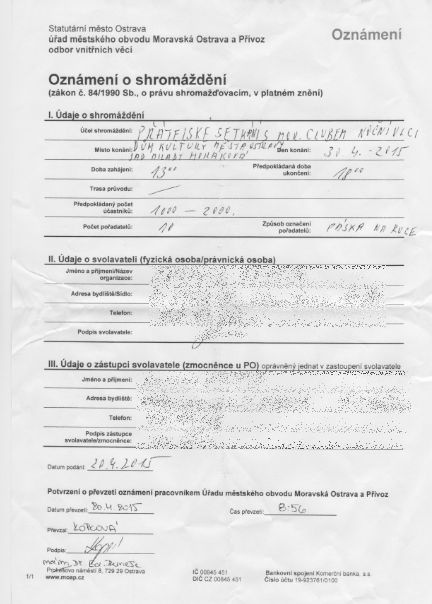 Statutární město Ostrava
úřad městského obvodu Moravská Ostrava a Přívoz
odbor vnitřních věcí
Oznámení
Oznámení o shromáždění
(zákon č. 84/1990 Sb., o právu shromažďovacím, v platném znění)
I. Údaje o shromáždění
Účel shromáždění: PŘÁTELSKÉ SETKÁNÍ S MOT. CLUBEM NOČNÍ VLCI
Místo konání: DŮM KULTURY MĚSTA OSTRAVY
SAD MILADY HORÁKOVÉ
Den konání: 30 4. -2015
Doba zahájení: 13 00
Předpokládaná doba ukončení: 18 00
Trasa průvodu: —
Předpokládaný počet účastníků: 1000 - 2000.
Počet pořadatelů: 10
Způsob označení pořadatelů: PÁSKA NA RUCE
II. Údaje o svolavateli (fyzická osoba/právnická osoba)
Jméno a příjmení/Název organizace:
Adresa bydliště/Sídlo:
Telefon:
Podpis svolavatele:
III. Údaje o zástupci svolavatele (zmocněnce u PO) oprávněný jednat v zastoupení svolavatele
Jméno a příjmení:
Adresa bydliště:
Telefon:
Podpis zástupce svolavatele/zmocněnce:
Datum podání: 20.4.2015
Potvrzení o převzetí oznámení pracovníkem Úřadu městského obvodu Moravská Ostrava a Přívoz
Datum převzetí: 20.4.2015
Čas převzetí: 8:56
Převzal:
Podpis:
Prokešovo náměstí 8, 729 29 Ostrava
www.moap.cz
1/1
IČ 00845 451
DIČ CZ 00845 451
Bankovní spojení Komerční banka, a.s.
Číslo účtu 19-923761/0100